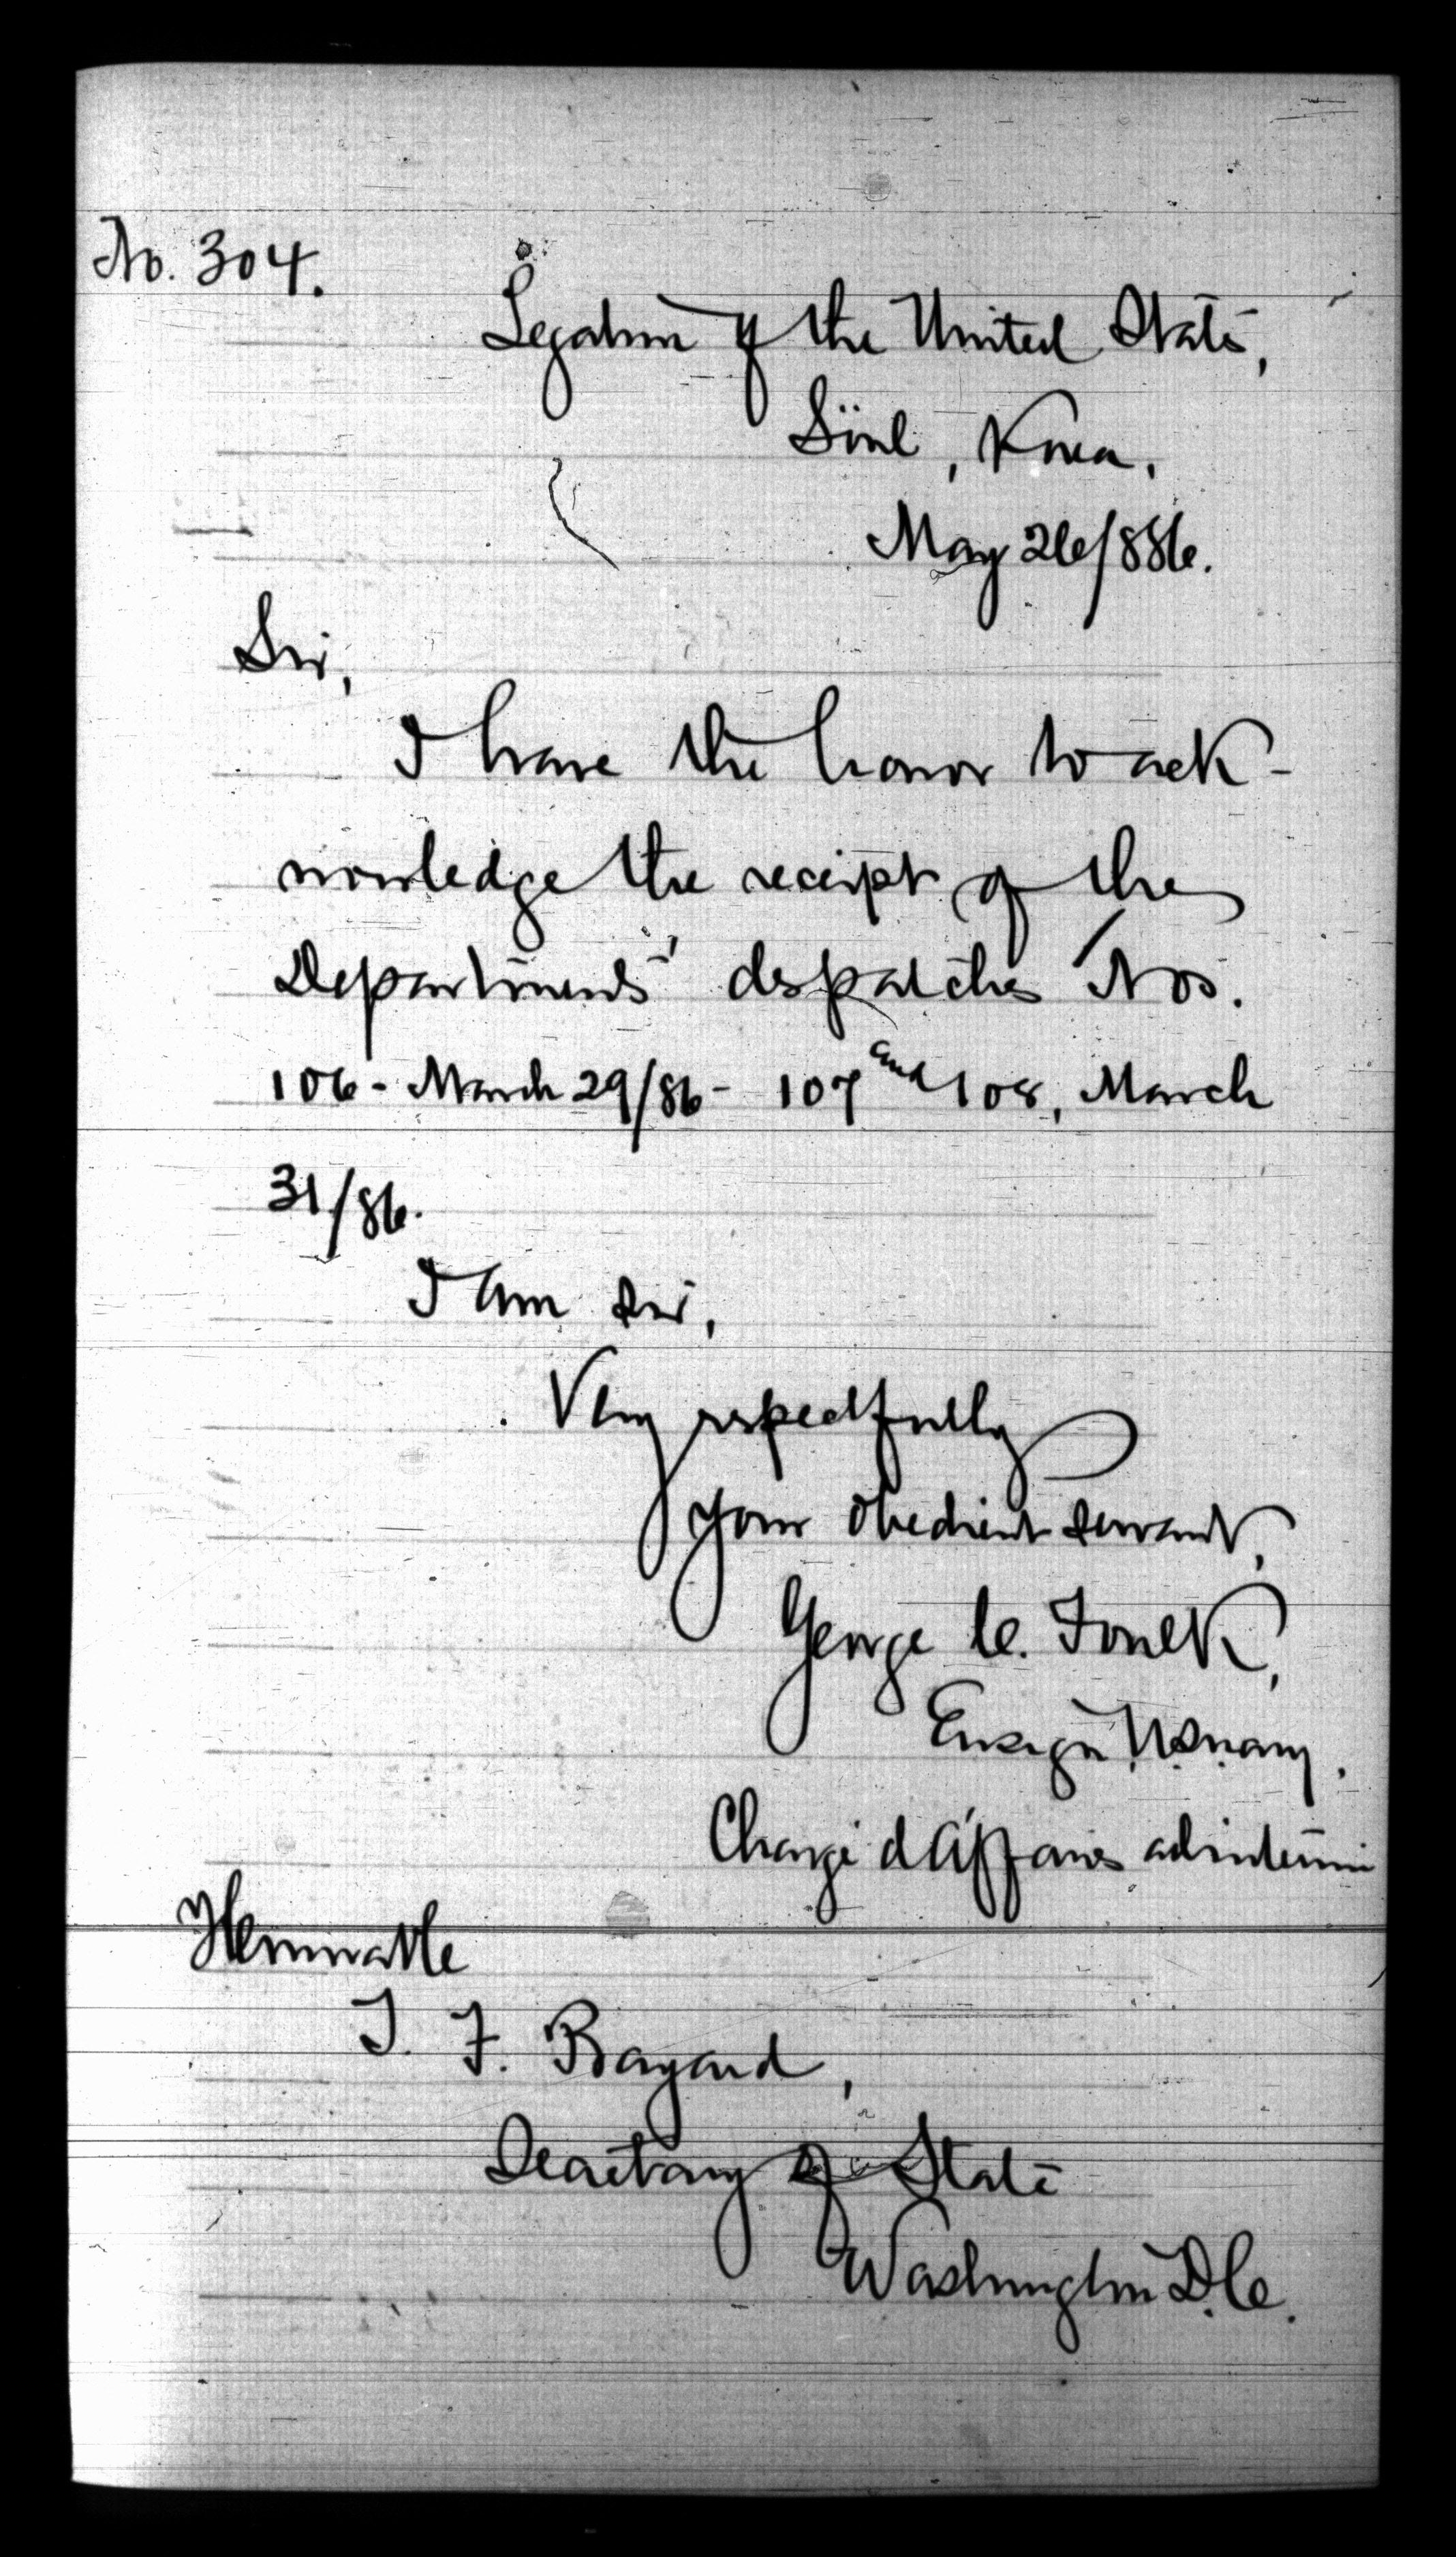 No. 304.
Legation of the United States,
Söul, Korea.
May 26/886.
Sir,
I have the honor to ack-
nowledge the receipt of the
Departments' despatches Nos.
106 - March 29/86 - 107 and 108, March
31/86.
I am sir,
Very respectfully
your obedient servant,
George C. Foulk,
Ensign U.S. Navy.
Chargé d'Affaires ad interim
Honorable
T. F. Bayard,
Secretary of State
Washington D.C.